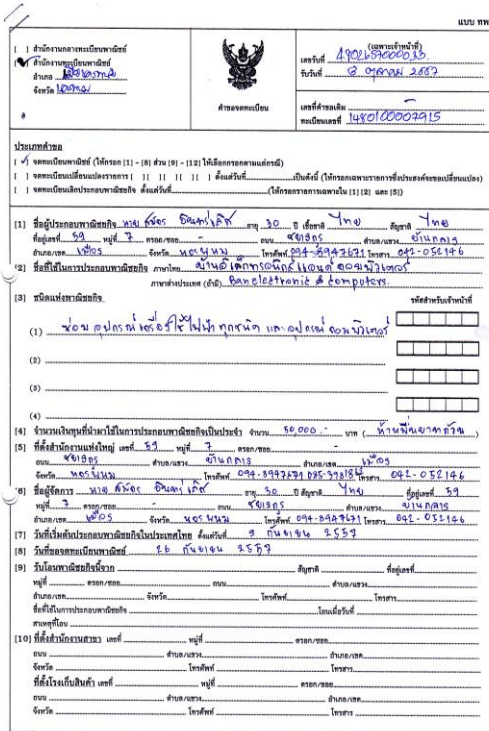 แบบ ทพ
[ ] สำนักงานกลางทะเบียนพาณิชย์
[✓] สำนักงานทะเบียนพาณิชย์
อำเภอ
จังหวัด นครพนม
คำขอจดทะเบียน
(เฉพาะเจ้าหน้าที่)
เลขรับที่
รับวันที่ ตุลาคม 2557
เลขที่คำขอเดิม -
ทะเบียนเลขที่ 1480100007915
ประเภทคำขอ
[✓] จดทะเบียนพาณิชย์ (ให้กรอก [1] - [8] ส่วน [9] - [12] ให้เลือกกรอกตามแต่กรณี)
[ ] จดทะเบียนเปลี่ยนแปลงรายการ [ ] [ ] [ ] [ ] [ ] ตั้งแต่วันที่ เป็นดังนี้ (ให้กรอกเฉพาะรายการซึ่งประสงค์จะขอเปลี่ยนแปลง)
[ ] จดทะเบียนเลิกประกอบพาณิชยกิจ ตั้งแต่วันที่ (ให้กรอกรายการเฉพาะใน [1] [2] และ [5])
[1] ชื่อผู้ประกอบพาณิชยกิจ นาย อายุ 30 ปี เชื้อชาติ ไทย สัญชาติ ไทย
ที่อยู่เลขที่ 59 หมู่ที่ 7 ตรอก/ซอย - ถนน ตำบล/แขวง บ้านกลาง
อำเภอ/เขต เมือง จังหวัด นครพนม โทรศัพท์ 094-8947671 โทรสาร 042-052146
[2] ชื่อที่ใช้ในการประกอบพาณิชยกิจ ภาษาไทย บ้านอิเล็กทรอนิกส์แอนด์คอมพิวเตอร์
ภาษาต่างประเทศ (ถ้ามี) Banelectronic & computers.
[3] ชนิดแห่งพาณิชยกิจ รหัสสำหรับเจ้าหน้าที่
(1) ซ่อมอุปกรณ์เครื่องใช้ไฟฟ้าทุกชนิด และอุปกรณ์คอมพิวเตอร์
(2)
(3)
(4)
[4] จำนวนเงินทุนที่นำมาใช้ในการประกอบพาณิชยกิจเป็นประจำ จำนวน 50,000.- บาท (ห้าหมื่นบาทถ้วน)
[5] ที่ตั้งสำนักงานแห่งใหญ่ เลขที่ 59 หมู่ที่ 7 ตรอก/ซอย -
ถนน ตำบล/แขวง บ้านกลาง อำเภอ/เขต เมือง
จังหวัด นครพนม โทรศัพท์ 094-8947671 โทรสาร 042-052146
[6] ชื่อผู้จัดการ นาย อายุ 30 ปี สัญชาติ ไทย ที่อยู่เลขที่ 59
หมู่ที่ 7 ตรอก/ซอย - ถนน ตำบล/แขวง บ้านกลาง
อำเภอ/เขต เมือง จังหวัด นครพนม โทรศัพท์ 094-8947671 โทรสาร 042-052146
[7] วันที่เริ่มต้นประกอบพาณิชยกิจในประเทศไทย ตั้งแต่วันที่ 9 กันยายน 2557
[8] วันที่ขอจดทะเบียนพาณิชย์ 26 กันยายน 2557
[9] รับโอนพาณิชยกิจนี้จาก สัญชาติ ที่อยู่เลขที่
หมู่ที่ ตรอก/ซอย ถนน ตำบล/แขวง
อำเภอ/เขต จังหวัด โทรศัพท์ โทรสาร
ชื่อที่ใช้ในการประกอบพาณิชยกิจ โอนเมื่อวันที่
สาเหตุที่โอน
[10] ที่ตั้งสำนักงานสาขา เลขที่ หมู่ที่ ตรอก/ซอย
ถนน ตำบล/แขวง อำเภอ/เขต
จังหวัด โทรศัพท์ โทรสาร
ที่ตั้งโรงเก็บสินค้า เลขที่ หมู่ที่ ตรอก/ซอย
ถนน ตำบล/แขวง อำเภอ/เขต
จังหวัด โทรศัพท์ โทรสาร